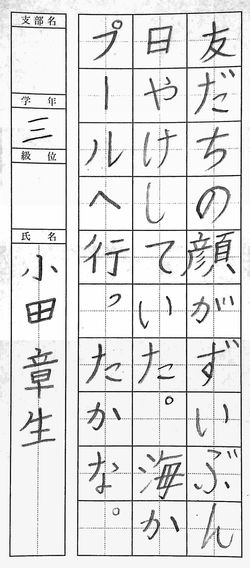 友だちの顔がずいぶん
日やけしていた。海か
プールへ行ったかな。
支部名
学年
三
級位
氏名
小田章生